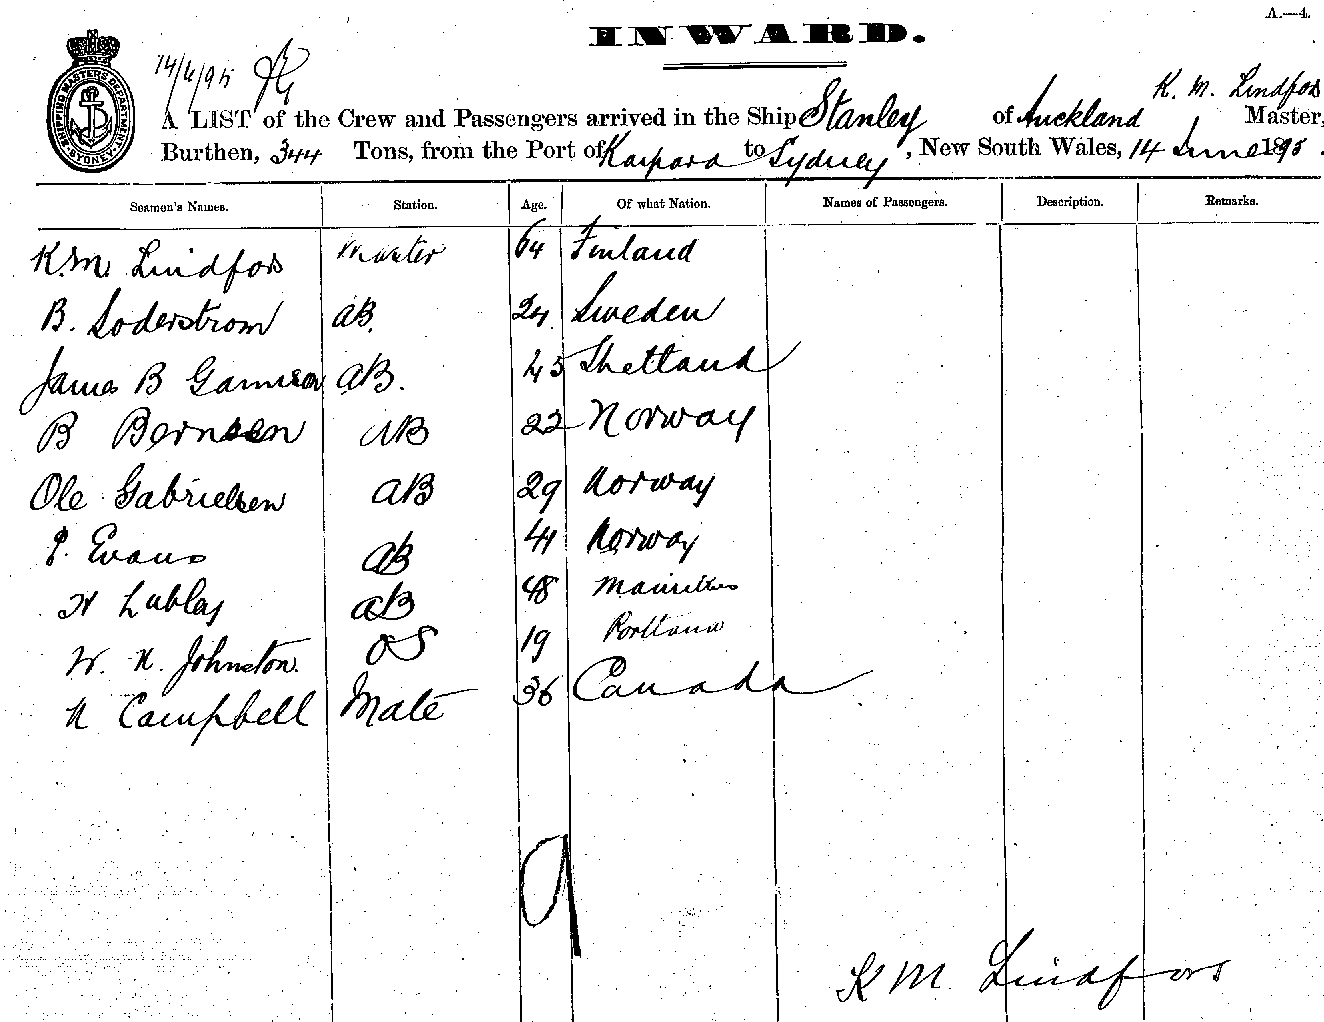 A.—4.
INWARD.
SHIPPING MASTERS DEPARTMENT SYDNEY
14/6/95
K. M. Lindfors
A LIST of the Crew and Passengers arrived in the Ship Stanley of Auckland Master,
Burthen, 344 Tons, from the Port of Kaipara to Sydney, New South Wales, 14 June 1895.
Seamen's Names. Station. Age. Of what Nation. Names of Passengers. Description. Remarks.
K. M. Lindfors Master 64 Finland
B. Soderstrom AB. 24 Sweden
James B AB. 45 Shetland
B Bernsen AB 22 Norway
Ole Gabrielsen AB 29 Norway
P. Evans AB 41 Norway
H AB 48 Mauritius
W. H. Johnston. OS 19 Portland
N Campbell Mate 36 Canada
9
K M Lindfors